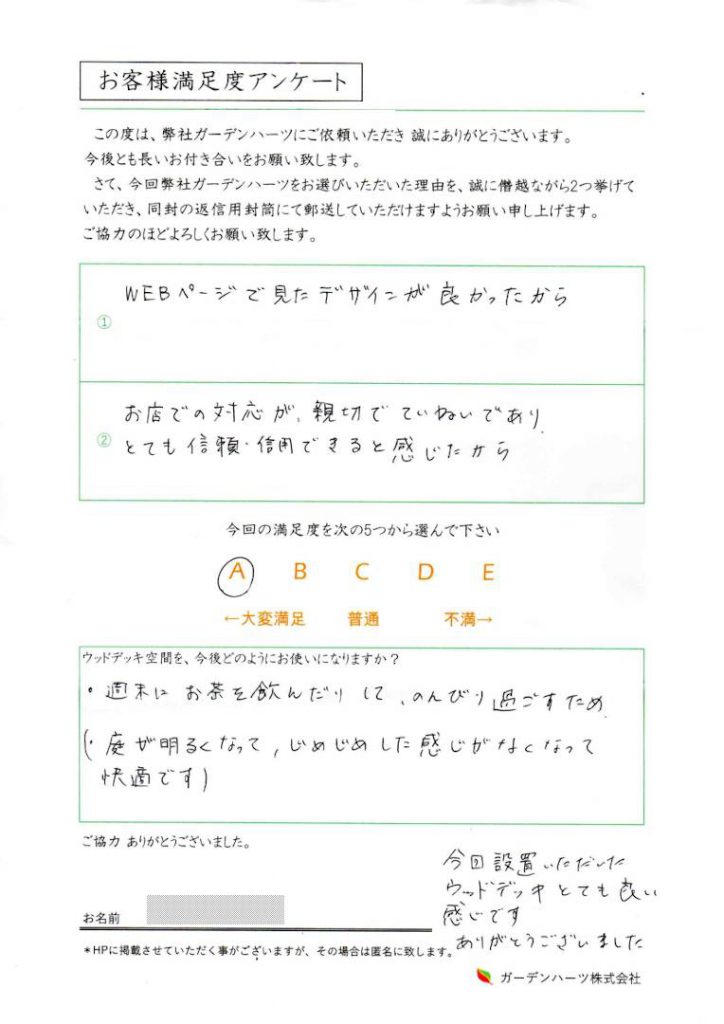 お客様満足度アンケート
この度は、弊社ガーデンハーツにご依頼いただき 誠にありがとうございます。
今後とも長いお付き合いをお願い致します。
さて、今回弊社ガーデンハーツをお選びいただいた理由を、誠に僭越ながら2つ挙げて
いただき、同封の返信用封筒にて郵送していただけますようお願い申し上げます。
ご協力のほどよろしくお願い致します。
① WEBページで見たデザインが良かったから
② お店での対応が、親切でていねいであり、
とても信頼・信用できると感じたから
今回の満足度を次の5つから選んで下さい
A B C D E
←大変満足 普通 不満→
ウッドデッキ空間を、今後どのようにお使いになりますか？
・週末にお茶を飲んだりして、のんびり過ごすため
(・庭が明るくなって、じめじめした感じがなくなって
快適です)
ご協力 ありがとうございました。
今回設置いただいた
ウッドデッキとても良い
感じです
ありがとうございました
お名前
＊HPに掲載させていただく事がございますが、その場合は匿名に致します。
ガーデンハーツ株式会社